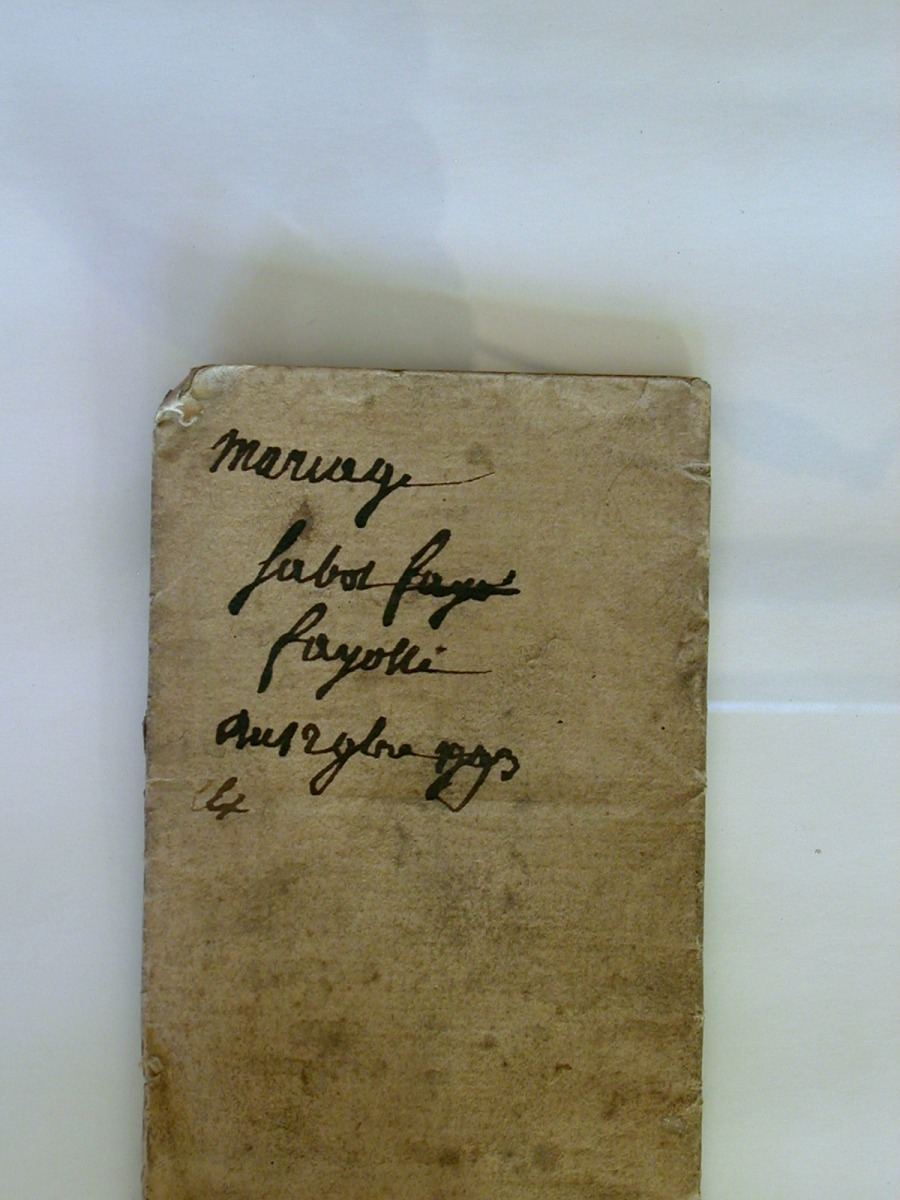 Mariage
Sabot fayo
fayolle
Du 12 9bre 1793